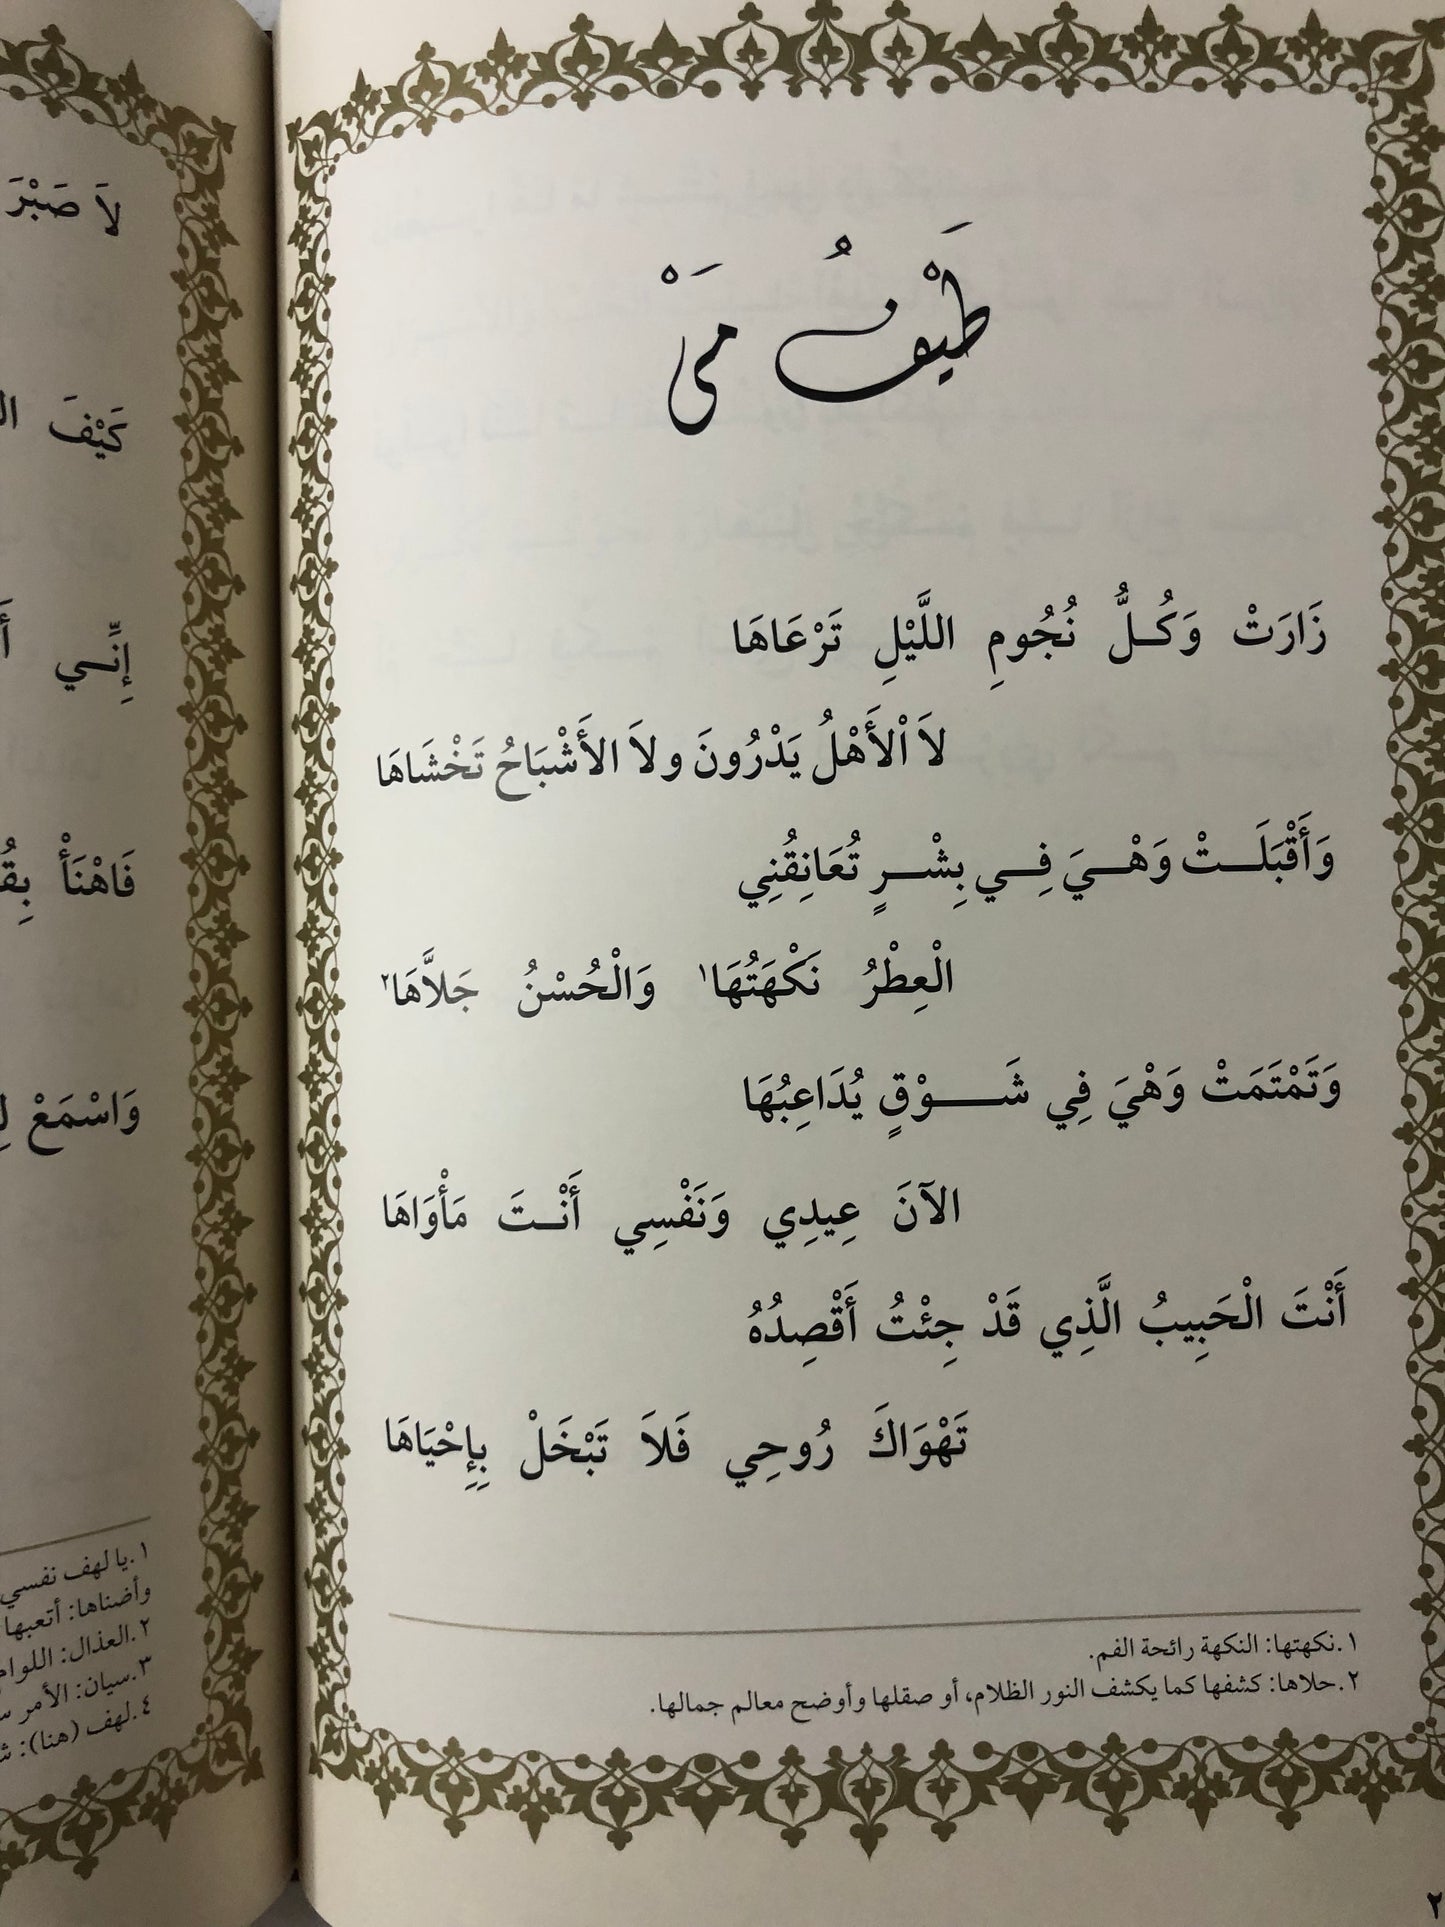 طَيْفُ مَيْ
زَارَتْ وَكُـلُّ نُجُومِ اللَّيْلِ تَرْعَاهَا
لاَ اْلأَهْلُ يَدْرُونَ ولاَ الأَشْبَاحُ تَخْشَاهَا
وَأَقْبَلَـــتْ وَهْـــيَ فِـــي بِشْـــرٍ تُعَانِقُنِي
الْعِطْرُ نَكْهَتُهَا١ وَالْحُسْنُ جَلاَّهَا٢
وَتَمْتَمَتْ وَهْيَ فِي شَـــــوْقٍ يُدَاعِبُهَا
الآنَ عِيدِي وَنَفْسِي أَنْـتَ مَأْوَاهَا
أَنْتَ الْحَبِيبُ الَّذِي قَدْ جِئْتُ أَقْصِدُهُ
تَهْوَاكَ رُوحِي فَلاَ تَبْخَلْ بِإِحْيَاهَا
١.نكهتها: النكهة رائحة الفم.
٢.حلاها: كشفها كما يكشف النور الظلام، أو صقلها وأوضح معالم جمالها.
٢
لاَ صَبْرَ
كَيْفَ
إِنِّـي
فَاهْنَأْ
وَاسْمَعْ
١.يا لهف نفسي
وأضناها: أتعبها
٢.العذال: اللوام
٣.سيان: الأمر
٤.لهف (هنا):